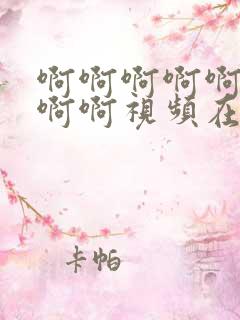 啊啊啊啊啊
啊啊視頻在
卡帕